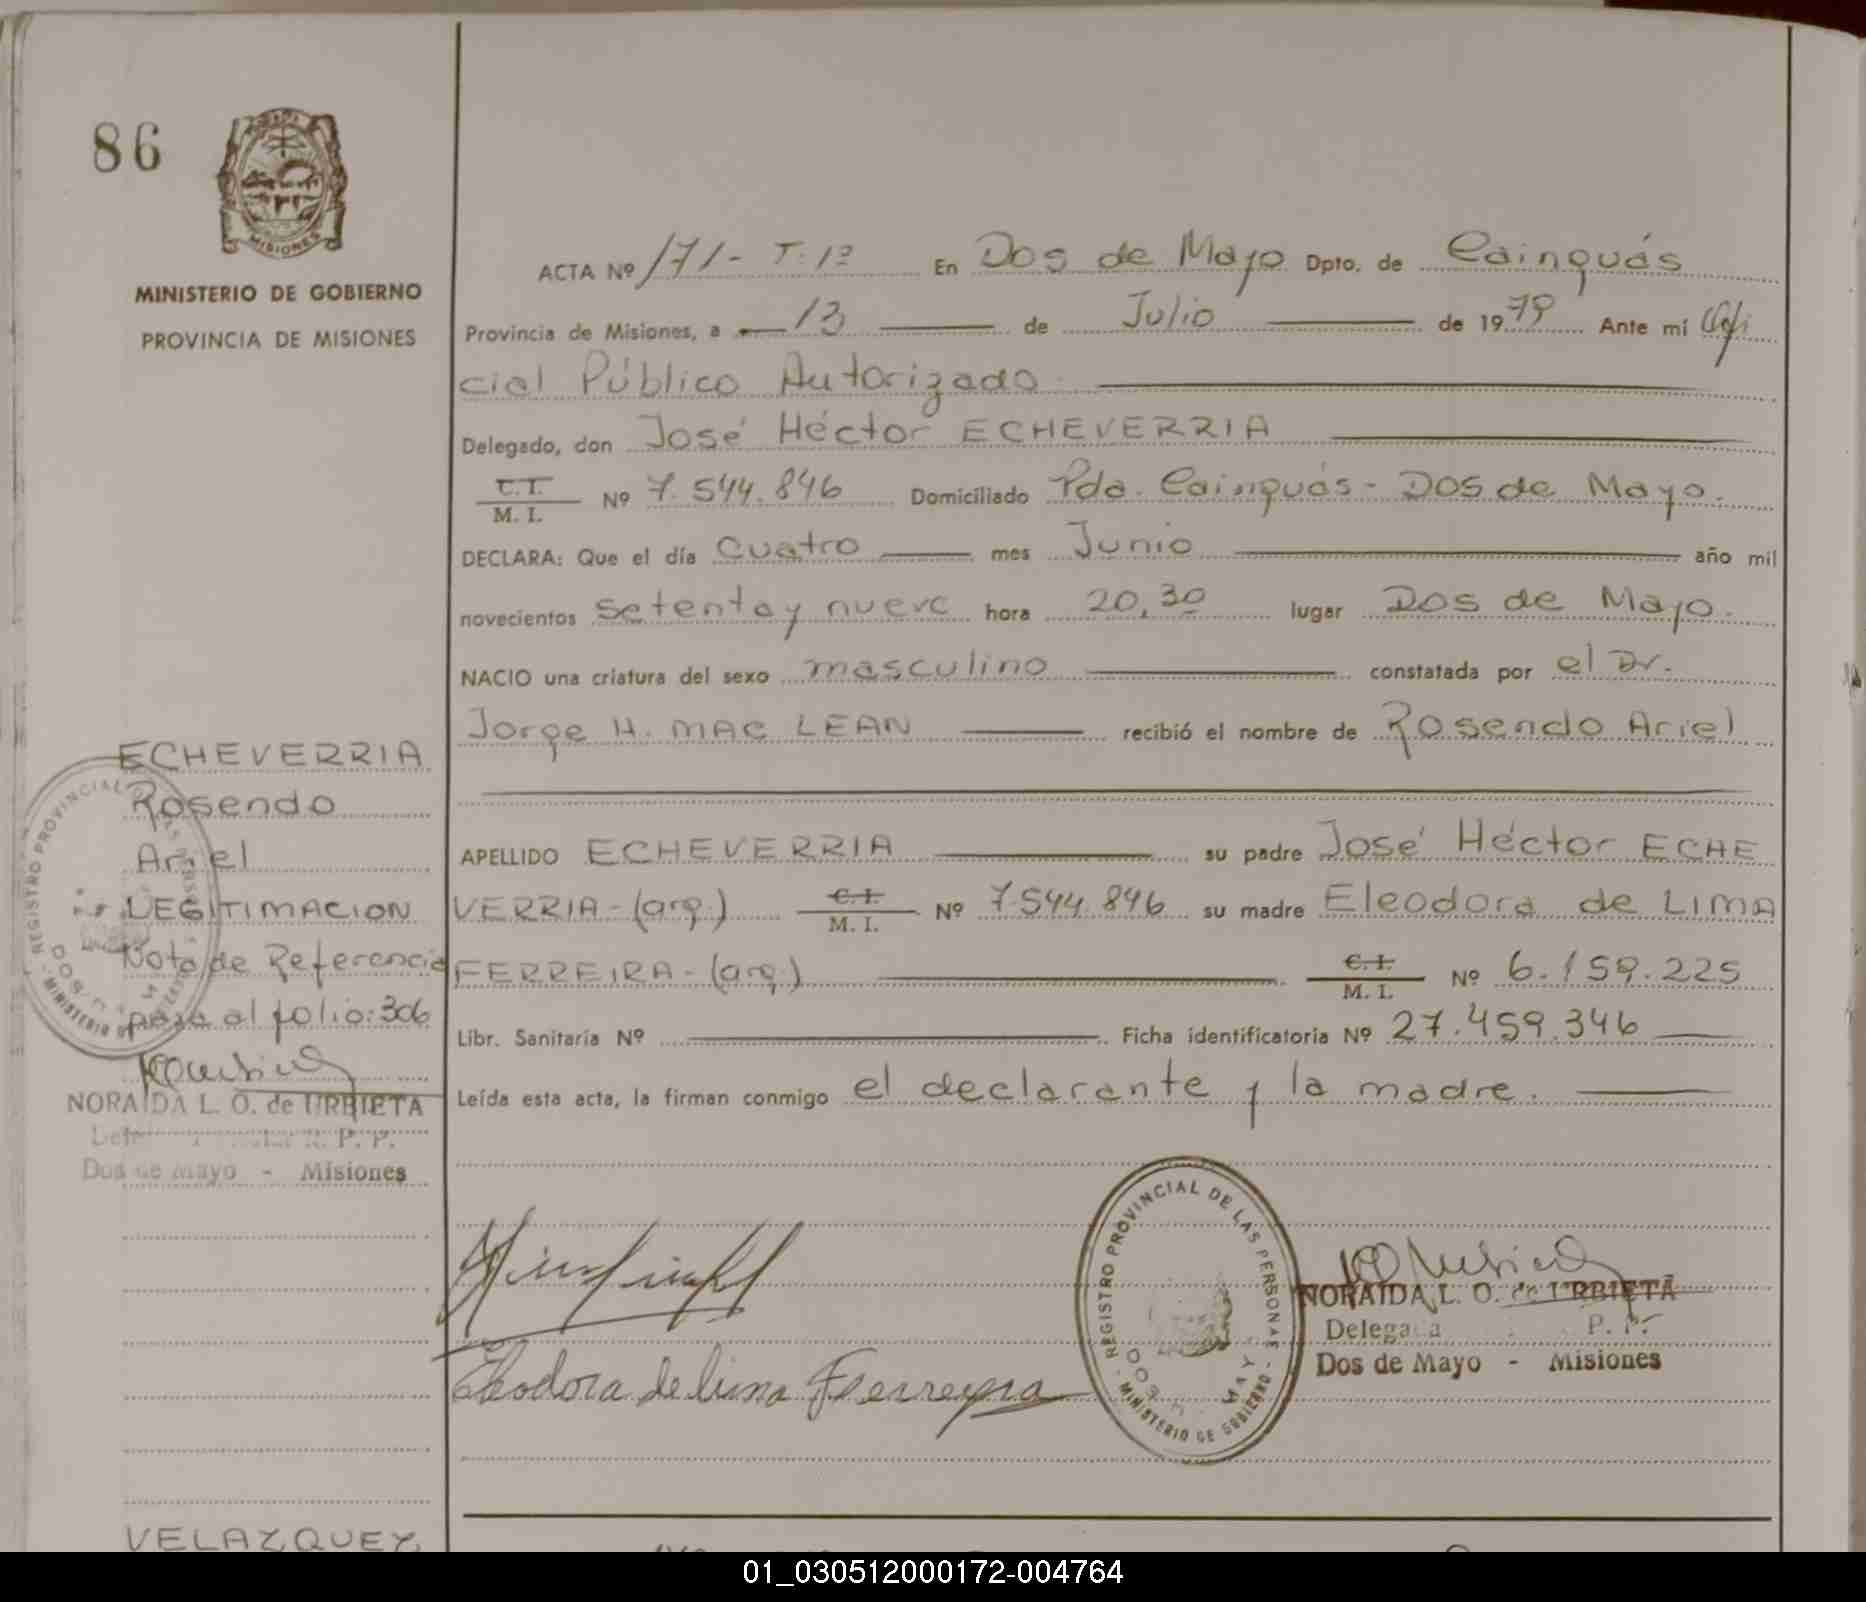 86
MISIONES
MINISTERIO DE GOBIERNO
PROVINCIA DE MISIONES
ACTA Nº 171 - T. 1º En Dos de Mayo Dpto. de Cainguás
Provincia de Misiones, a 13 de Julio de 1979 Ante mí Ofi
cial Público Autorizado
Delegado, don José Héctor ECHEVERRIA
C.I.
M. I. Nº 7.544.846 Domiciliado Pda. Cainguás - Dos de Mayo.
DECLARA: Que el día cuatro mes Junio año mil
novecientos setenta y nueve hora 20,30 lugar Dos de Mayo.
NACIO una criatura del sexo masculino constatada por el Dr.
Jorge H. MAC LEAN recibió el nombre de Rosendo Ariel
APELLIDO ECHEVERRIA su padre José Héctor ECHE
VERRIA - (arg.) C.I.
M. I. Nº 7.544.846 su madre Eleodora de LIMA
FERREIRA - (arg.) C.I.
M. I. Nº 6.159.225
Libr. Sanitaria Nº Ficha identificatoria Nº 27.459.346
Leída esta acta, la firman conmigo el declarante y la madre.
ECHEVERRIA
Rosendo
Ariel
LEGITIMACION
Nota de Referencia
pasa al folio: 306
NORAIDA L. O. de URBIETA
P. P.
Dos de Mayo - Misiones
REGISTRO PROVINCIAL DE LAS PERSONAS
MINISTERIO DE GOBIERNO
Eleodora de lima Ferreyra
REGISTRO PROVINCIAL DE LAS PERSONAS
MINISTERIO DE GOBIERNO
NORAIDA L. O. de URBIETA
Delegada P. P.
Dos de Mayo - Misiones
VELAZQUEZ
01_030512000172-004764